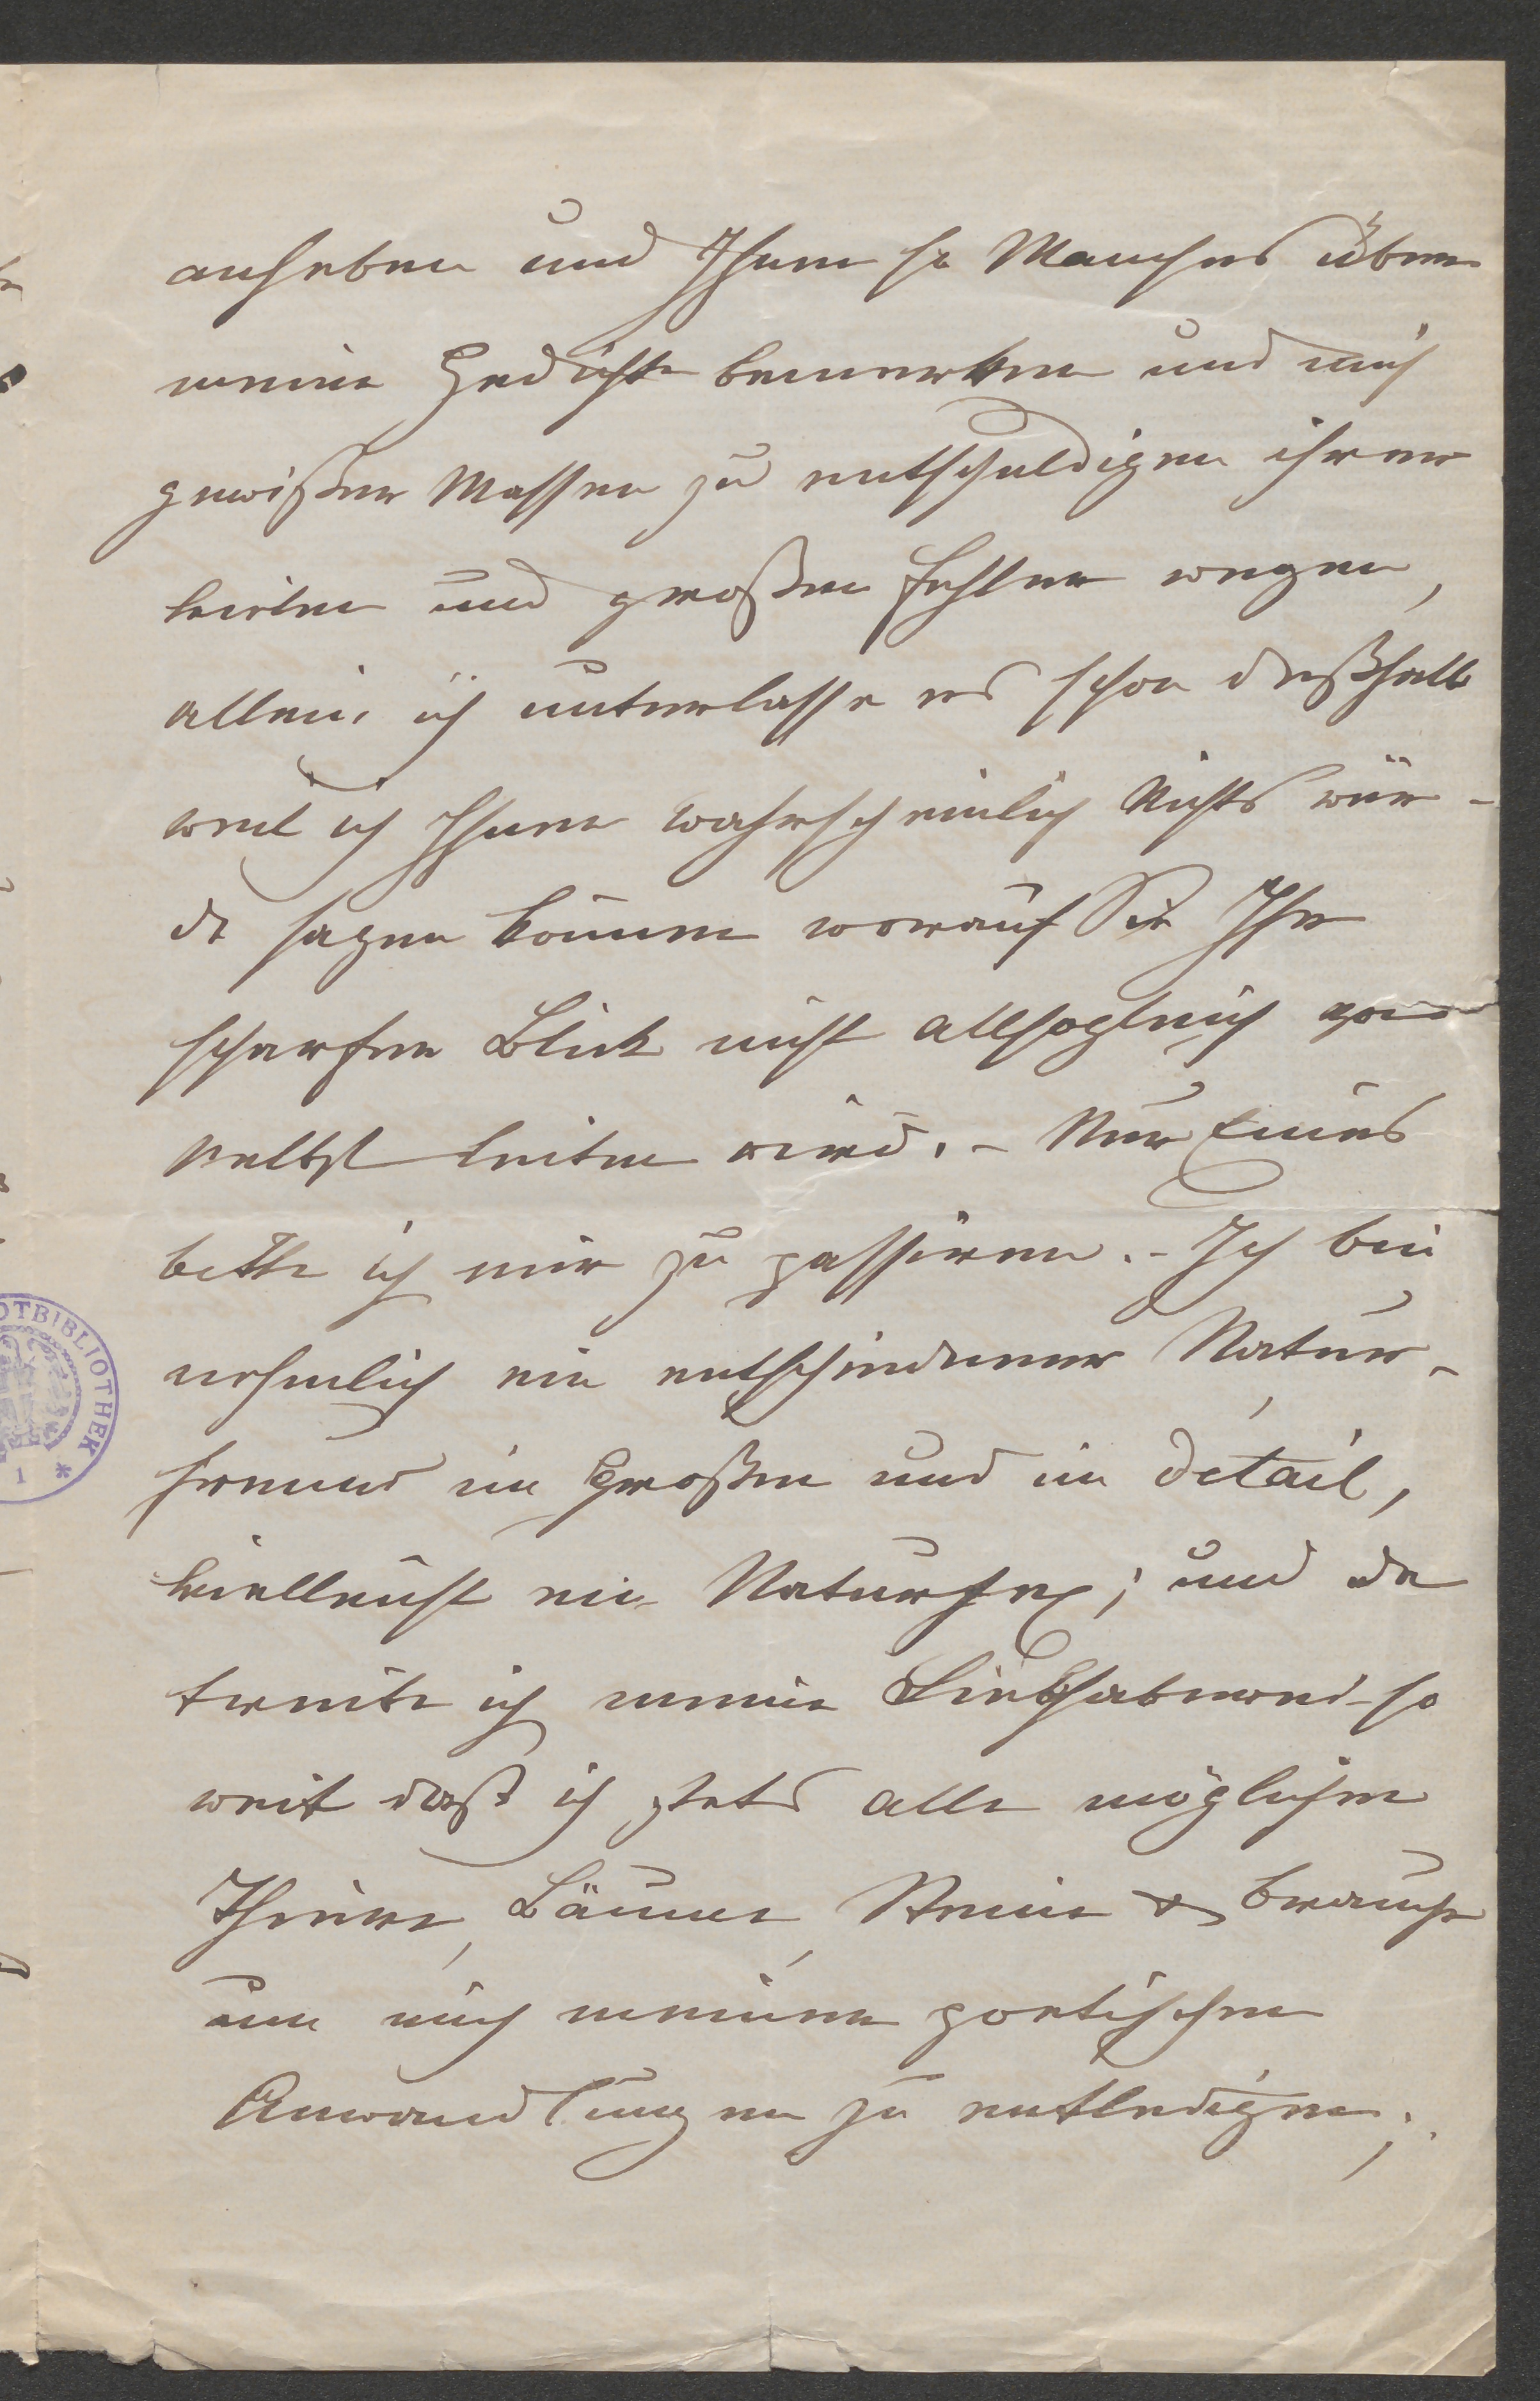 anheben und Ihnen so Manches über
meine Gedichte bemerken und mich
gewißer Massen zu entschuldigen ihrer
vielen und großen Fehler wegen,
allein ich unterlasse es schon deßhalb
weil ich Ihnen wahrscheinlich Nichts wür-
de sagen können worauf Sie Ihr
scharfer Blick nicht allsogleich von
selbst leiten wird. – Nur Eines
bitte ich mir zu passiren. – Ich bin
nehmlich ein entschiedener Natur-
freund im Großen und im Détail,
vielleicht ein Naturfex; und da
treibe ich meine Liebhaberei so
weit daß ich stets alle möglichen
Thiere, Bäume, Steine & brauche
um mich meiner poetischen
Anwandlungen zu entledigen;
OTBIBLIOTHEK
1 *